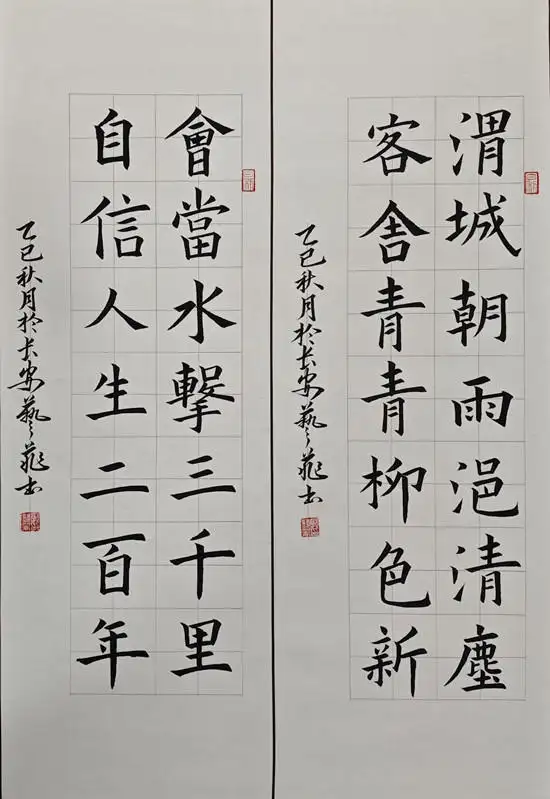 渭城朝雨浥清塵
客舍青青柳色新
乙巳秋月於長安藝
會當水擊三千里
自信人生二百年
乙巳秋月於長安藝